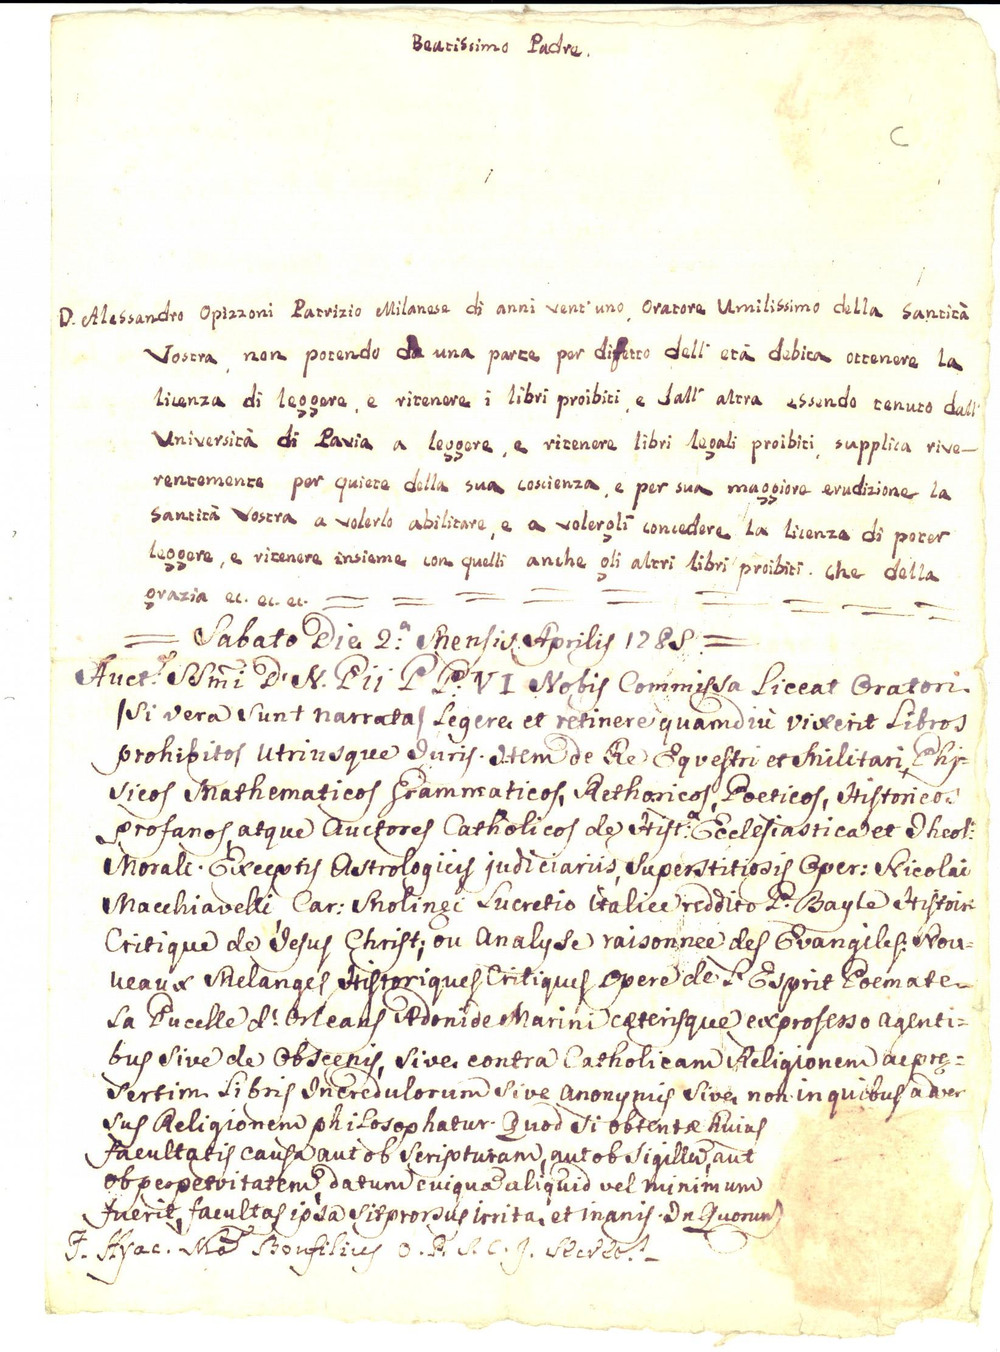 Beatissimo Padre.
C
D. Alessandro Opizzoni Patrizio Milanese di anni vent'uno, Oratore Umilissimo della Santità
Vostra, non potendo da una parte per difetto dell'età debita ottenere la
licenza di leggere, e ritenere i libri proibiti, e dall'altra essendo tenuto dall'
Università di Pavia a leggere, e ritenere libri legali proibiti, supplica rive-
rentemente per quiete della sua coscienza, e per sua maggiore erudizione la
Santità Vostra a volerlo abilitare, e a volergli concedere la licenza di poter
leggere, e ritenere insieme con quelli anche gli altri libri proibiti. Che della
grazia ec. ec. ec.
Sabato Die 2.a Mensis Aprilis 1788
Auct.e SSmi D. N. Pii P P. VI Nobis Commissa Liceat Oratori
(si vera sunt narrata) Legere et retinere quamdiù vixerit Libros
prohibitos Utriusque Juris. Item de Re Equestri et Militari, Phi-
sicos Mathematicos Grammaticos, Rethoricos, Poeticos, Historicos
profanos, atque Auctores Catholicos de Hist.a Ecclesiastica et Theol:
Morali. Exceptis Astrologicis judiciariis, Superstitiosis Oper: Nicolai
Macchiavelli, Car: Molinei Lucretio italice reddito P. Bayle Histoire
Critique de Jesus Christ; ou Analyse raisonnee des Evangiles: Nou-
veaux Melanges Historiques Critiques Opere de L'Esprit Poemate
La Pucelle d'Orleans Adoni de Marini cæterisque ex professo agenti-
bus sive de Obscenis, sive contra Catholicam Religionem ac præ-
sertim Libris Incredulorum sive Anonymis sive non in quibus adver
sus Religionem philosophatur. Quod si obtentæ huius
facultatis causa aut ob Scripturam, aut ob Sigillum, aut
ob perpetuitatem, datum cuiquam aliquid vel minimum
fuerit, facultas ipsa sit prorsus irrita, et inanis. In Quorum
F. Hyac. Ma Bonfilius O. P. S. C. J. Secret.